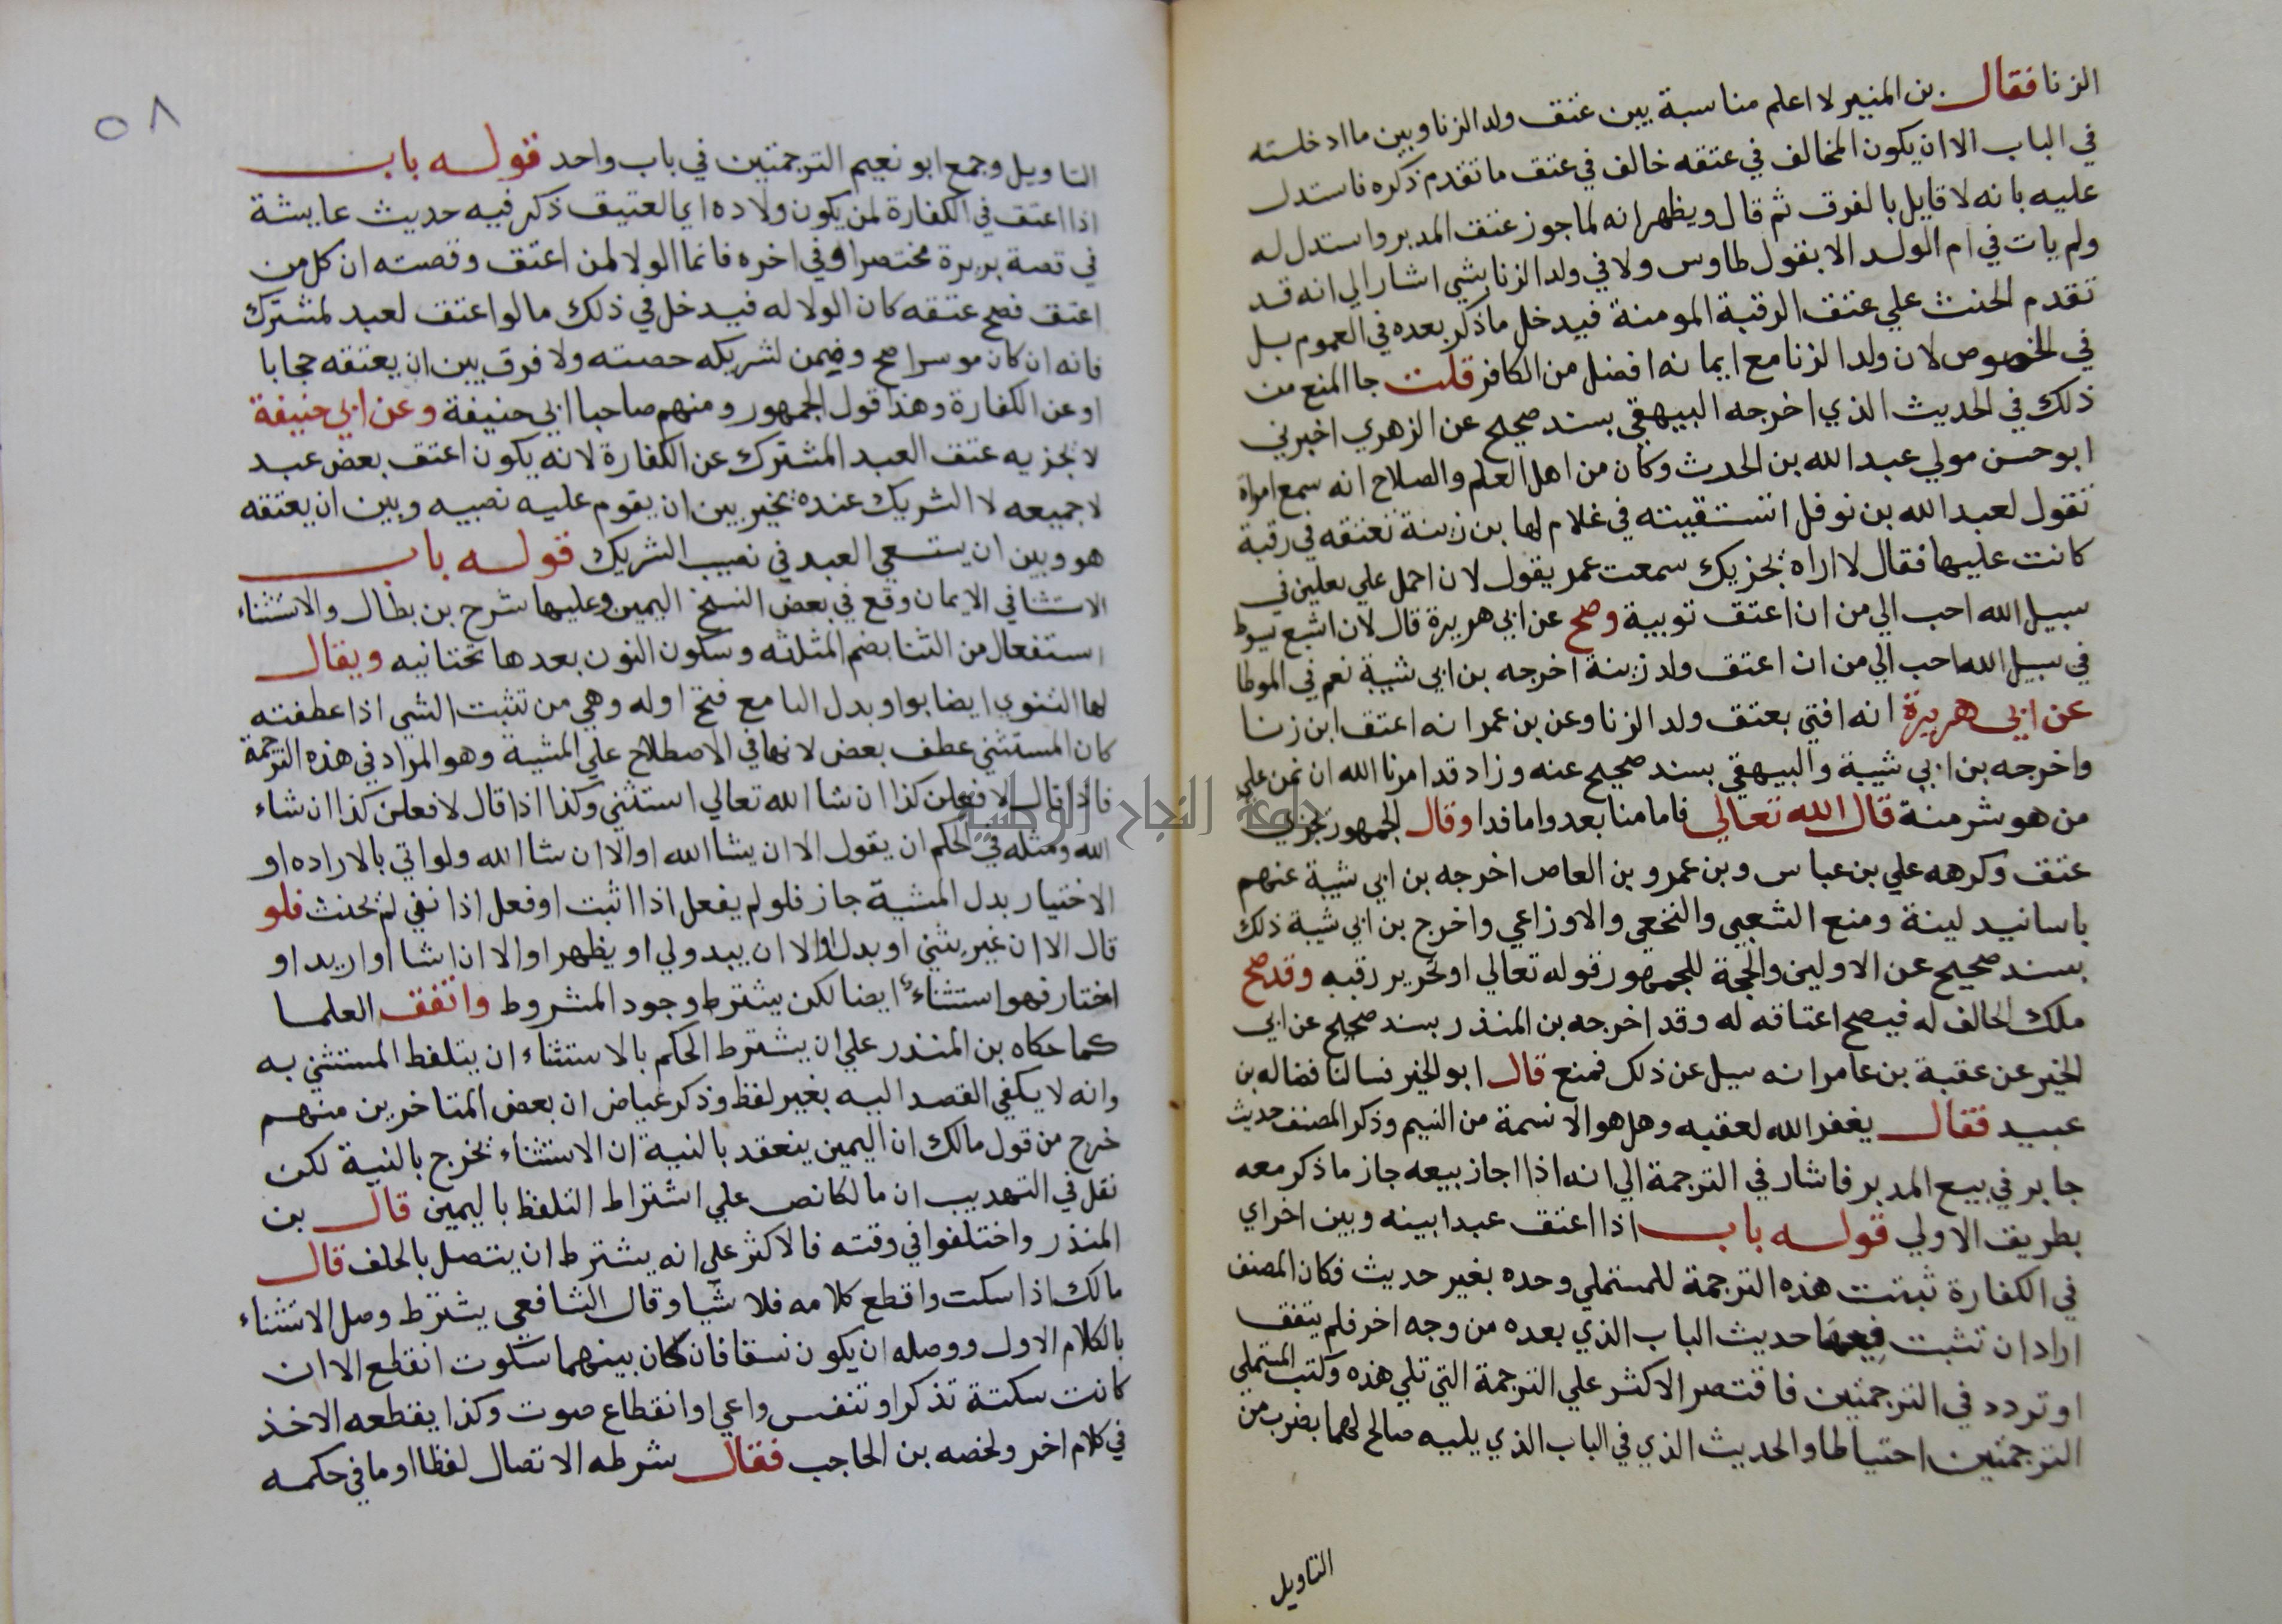 الزنا فقال بن المنير لا اعلم مناسبة بين عتق ولد الزنا وبين ما ادخلته
في الباب الا ان يكون المخالف في عتقه خالف في عتق ما تقدم ذكره فاستدل
عليه بانه لا قايل بالفرق ثم قال ويظهر انه لما جوز عتق المدبر واستدل له
ولم يات في ام الولد الا بقول طاوس ولا في ولد الزنا بشي اشار الي انه قد
تقدم الحنث علي عتق الرقبة المومنة فيدخل ما ذكر بعده في العموم بل
في الخصوص لان ولد الزنا مع ايمانه افضل من الكافر قلت جا المنع من
ذلك في الحديث الذي اخرجه البيهقي بسند صحيح عن الزهري اخبرني
ابو حسن مولي عبد الله بن الحدث وكان من اهل العلم والصلاح انه سمع امراة
تقول لعبد الله بن نوفل اتستقيته في غلام لها بن زنية تعتقه في رقبة
كانت عليها فقال لا اراه يجزيك سمعت عمر يقول لان احمل علي نعلين في
سبيل الله احب الي من ان اعتق توبية وصح عن ابي هريرة قال لان اشبع بسوط
في سبيل الله احب الي من ان اعتق ولد زنية اخرجه بن ابي شيبة نعم في الموطا
عن ابي هريرة انه افتي بعتق ولد الزنا وعن بن عمر انه اعتق ابن زنا
واخرجه بن ابي شيبة والبيهقي بسند صحيح عنه وزاد قد امرنا الله ان نمن علي
من هو شر منة قال الله تعالي فاما منا بعد واما فدا وقال الجمهور يجزي
عتق وكرهه علي بن عباس وبن عمرو بن العاص اخرجه بن ابي شيبة عنهم
باسانيد لينة ومنع الشعبي والنخعي والاوزاعي واخرج بن ابي شيبة ذلك
بسند صحيح عن الاولين والحجة للجمهور قوله تعالي او تحرير رقبه وقد صح
ملك الحالف له فيصح اعتاقه له وقد اخرجه بن المنذر بسند صحيح عن ابي
الخير عن عقبة بن عامر انه سيل عن ذلك فمنع قال ابو الخير فسالنا فضاله بن
عبيد فقال يغفر الله لعقبه وهل هو الا نسمة من النسم وذكر المصنف حديث
جابر في بيع المدبر فاشار في الترجمة الي انه اذا اجاز بيعه جاز ما ذكر معه
بطريق الاولي قوله باب اذا اعتق عبدا بينه وبين اخر اي
في الكفارة ثبتت هذه الترجمة للمستملي وحده بغير حديث فكان المصنف
اراد ان تثبت فيها حديث الباب الذي بعده من وجه اخر فلم يتفق
او تردد في الترجمتين فاقتصر الاكثر علي الترجمة التي تلي هذه وكتب المستملي
الترجمتين احتياطا والحديث الذي في الباب الذي يليه صالح لهما بضرب من
التاويل
٥٨
التاويل وجمع ابو نعيم الترجمتين في باب واحد قوله باب
اذا اعتق في الكفارة لمن يكون ولاده اي العتيق ذكر فيه حديث عايشة
في قصة بريرة مختصرا وفي اخره فانما الولا لمن اعتق وقصته ان كل من
اعتق فصح عتقه كان الولا له فيدخل في ذلك ما لو اعتق لعبد لمشترك
فانه ان كان موسرا صح وضمن لشريكه حصته ولا فرق بين ان يعتقه مجابا
او عن الكفارة وهذا قول الجمهور ومنهم صاحبا ابي حنيفة وعن ابي حنيفة
لا يجزيه عتق العبد المشترك عن الكفارة لانه يكون اعتق بعض عبد
لا جميعه لا الشريك عنده يخير بين ان يقوم عليه نصبيه وبين ان يعتقه
هو وبين ان يستعي العبد في نصيب الشريك قوله باب
الاستثنا في الايمان وقع في بعض النسخ اليمين وعليها شرح بن بطال والاستثناء
استفعال من الثنا بضم المثلثه وسكون النون بعدها تحتانيه ويقال
لها الثنوي ايضا بواو بدل اليا مع فتح اوله وهي من تثبت الشي اذا عطفته
كان المستثني عطف بعض لانها في الاصطلاح علي المشية وهو المراد في هذه الترجمة
فاذا قال لافعلن كذا ان شا الله تعالي استثني وكذا اذا قال لا فعلن كذا ان شاء
الله ومثله في الحكم ان يقول الا ان يشا الله او الا ان شا الله ولو اتي بالاراده او
الاختيار بدل المشية جاز فلو لم يفعل اذا اثبت او فعل اذا نفي لم يحنث فلو
قال الا ان غير يثني او بدل او الا ان يبدو لي او يظهر او الا ان اشا او اريد او
اختار فهو استثناء ايضا لكن يشترط وجود المشروط واتفق العلما
كما حكاه بن المنذر علي ان يشترط الحكم بالاستثناء ان يتلفظ المستثني به
وانه لا يكفي القصد اليه بغير لفظ وذكر عياض ان بعض المتاخرين منهم
خرج من قول مالك ان اليمين ينعقد بالنية ان الاستثناء يخرج بالنية لكن
نقل في التهديب ان مالكا نص علي اشتراط التلفظ باليمين قال بن
المنذر واختلفوا في وقته فالاكثر علي انه يشترط ان يتصل بالحلف قال
مالك اذا سكت واقطع كلامه فلا شيا وقال الشافعي يشترط وصل الاستثناء
بالكلام الاول ووصله ان يكون نسقا فان كان بينهما سكوت انقطع الا ان
كانت سكتة تذكر او تنفس واعي او انقطاع صوت وكذا يقطعه الاخذ
في كلام اخر ولخصه بن الحاجب فقال شرطه الاتصال لفظا او ما في حكمه
جامعة النجاح الوطنية